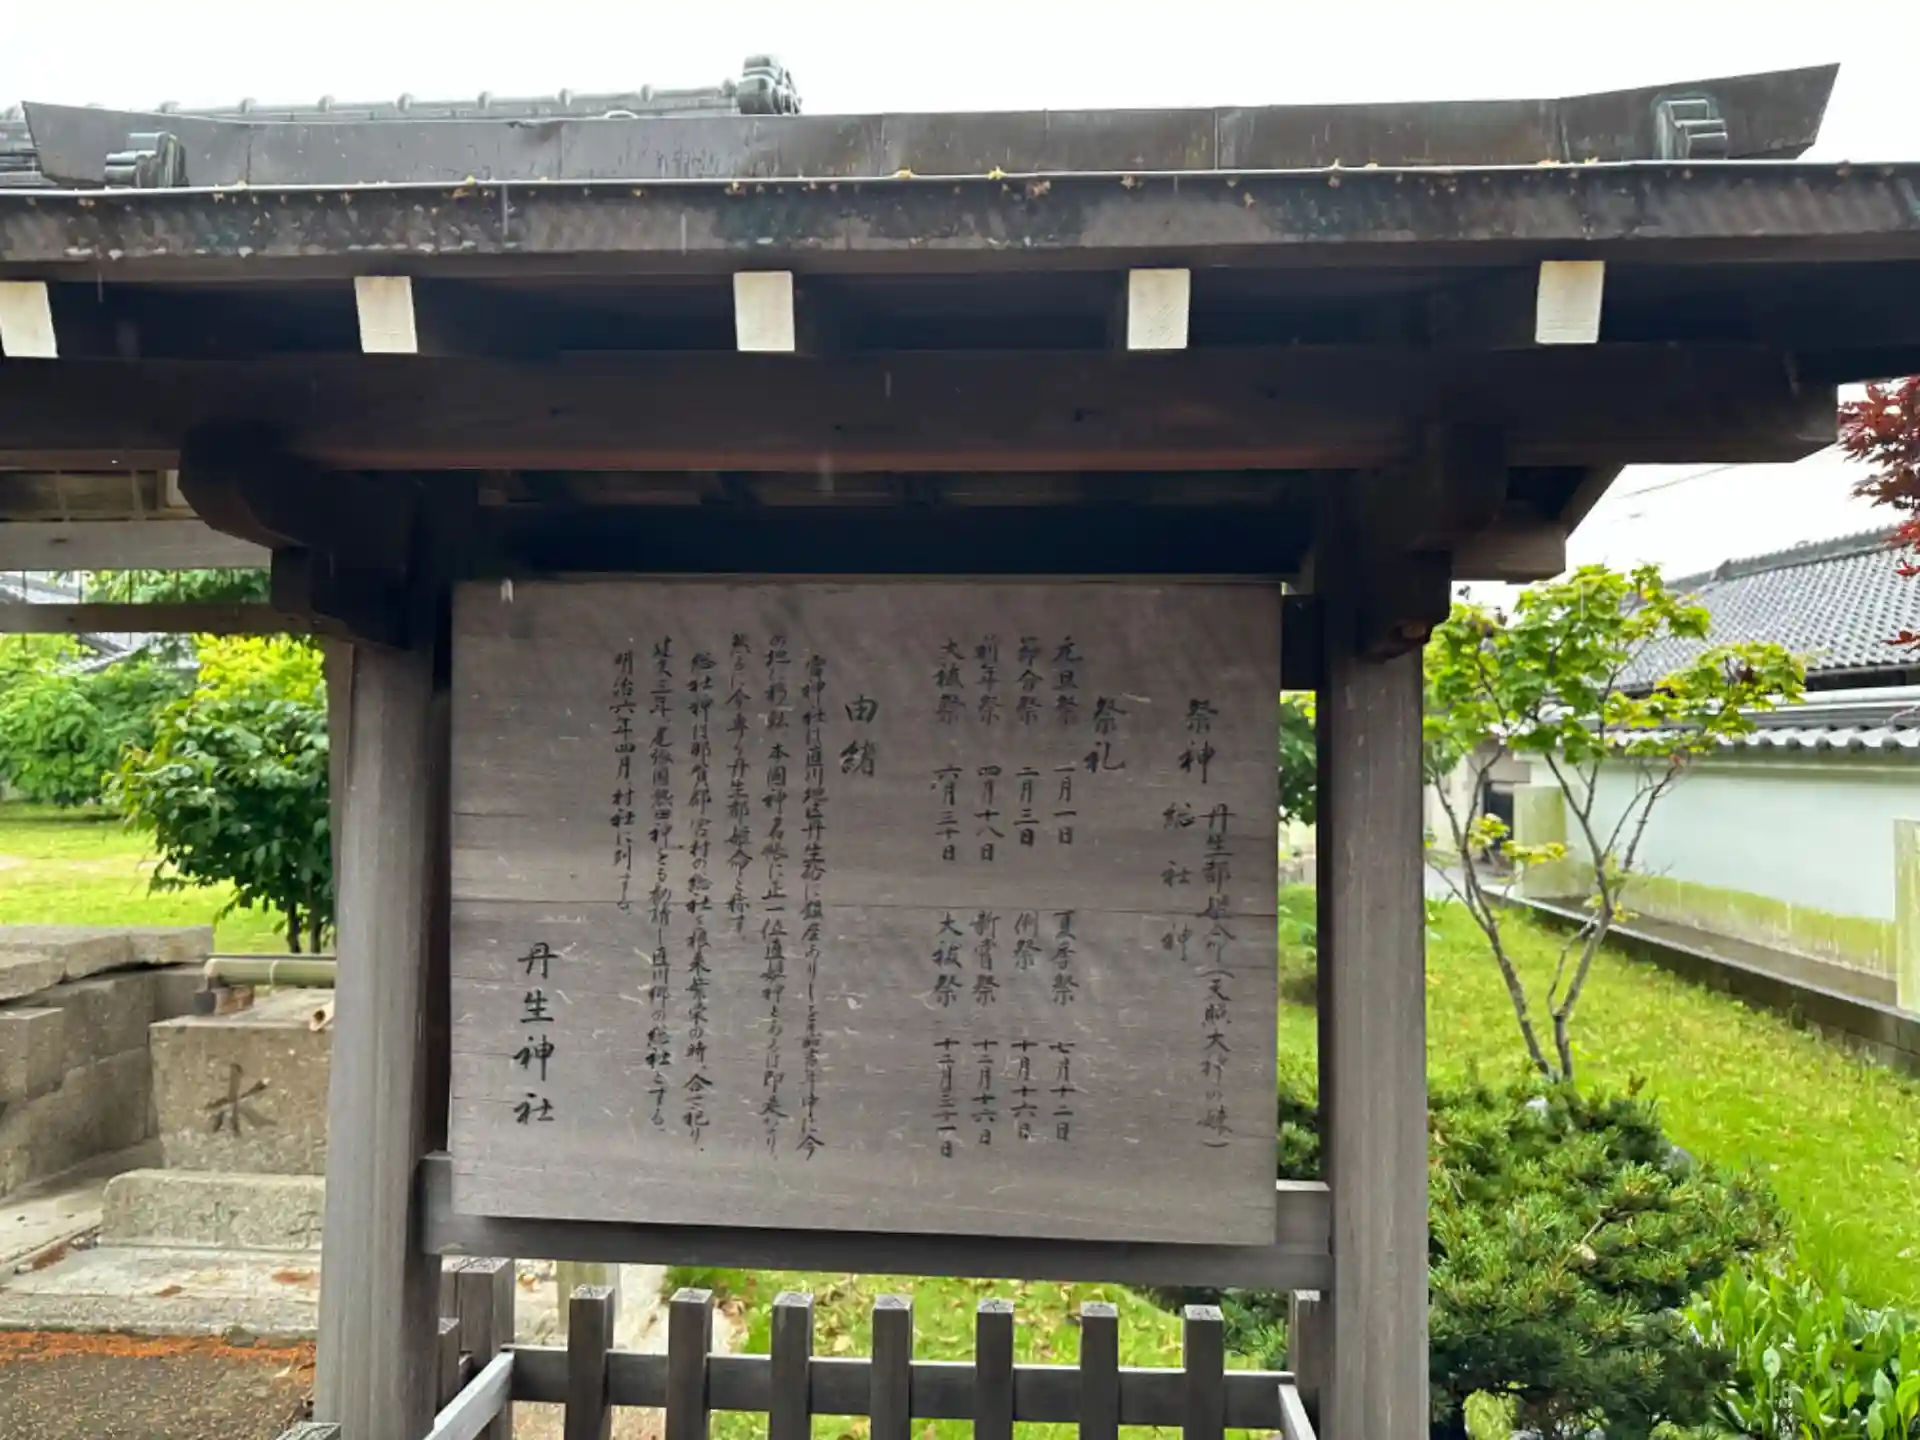 祭神
丹生都姫命(天照大神の妹)
総社神
祭礼
元旦祭 一月一日
節分祭 二月三日
祈年祭 四月十八日
大祓祭 六月三十日
夏季祭 七月十二日
例祭 十月十六日
新嘗祭 十二月十六日
大祓祭 十二月三十一日
由緒
当神社は直川地区丹生谷に鎮座ありしを 年中に今
の地に移転、本国神名帳に正一位直姫神とあるは即ち あり、
然るに今専ら丹生都姫命と称す。
総社神は那賀郡宮村の総社を根来繁栄の時、合せ祀り、
建久三年尾張国熱田神をも勧請し直川郷の総社とする。
明治六年四月村社に列する。
丹生神社
水